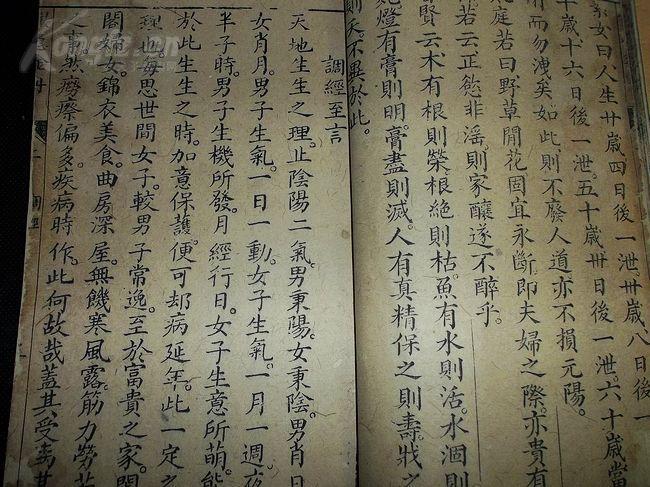 素女曰人生廿歲四日後一泄卅歲八日後一
十歲十六日後一泄五十歲卅日後一泄六十歲當
而勿洩矣如此則不廢人道亦不損元陽
庭若曰野草閒花固宜永斷即夫婦之際亦貴有
若云正慾非滛則家釀遂不醉乎
賢云木有根則榮根絕則枯魚有水則活水涸則
燈有膏則明膏盡則滅人有真精保之則壽戕之
則夭不異於此
調經至言
天地生生之理止陰陽二氣男秉陽女秉陰男肖日
女肖月男子生氣一日一動女子生氣一月一週夜
半子時男子生機所發月經行日女子生意所萌能
於此生生之時加意保護便可却病延年此一定之
理也每思世間女子較男子常逸至於富貴之家閨
閣婦女錦衣美食曲房深屋無饑寒風露筋力勞苦
而羸癆瘵偏多疾病時作此何故哉蓋其受病其
調經
Kongfz.com